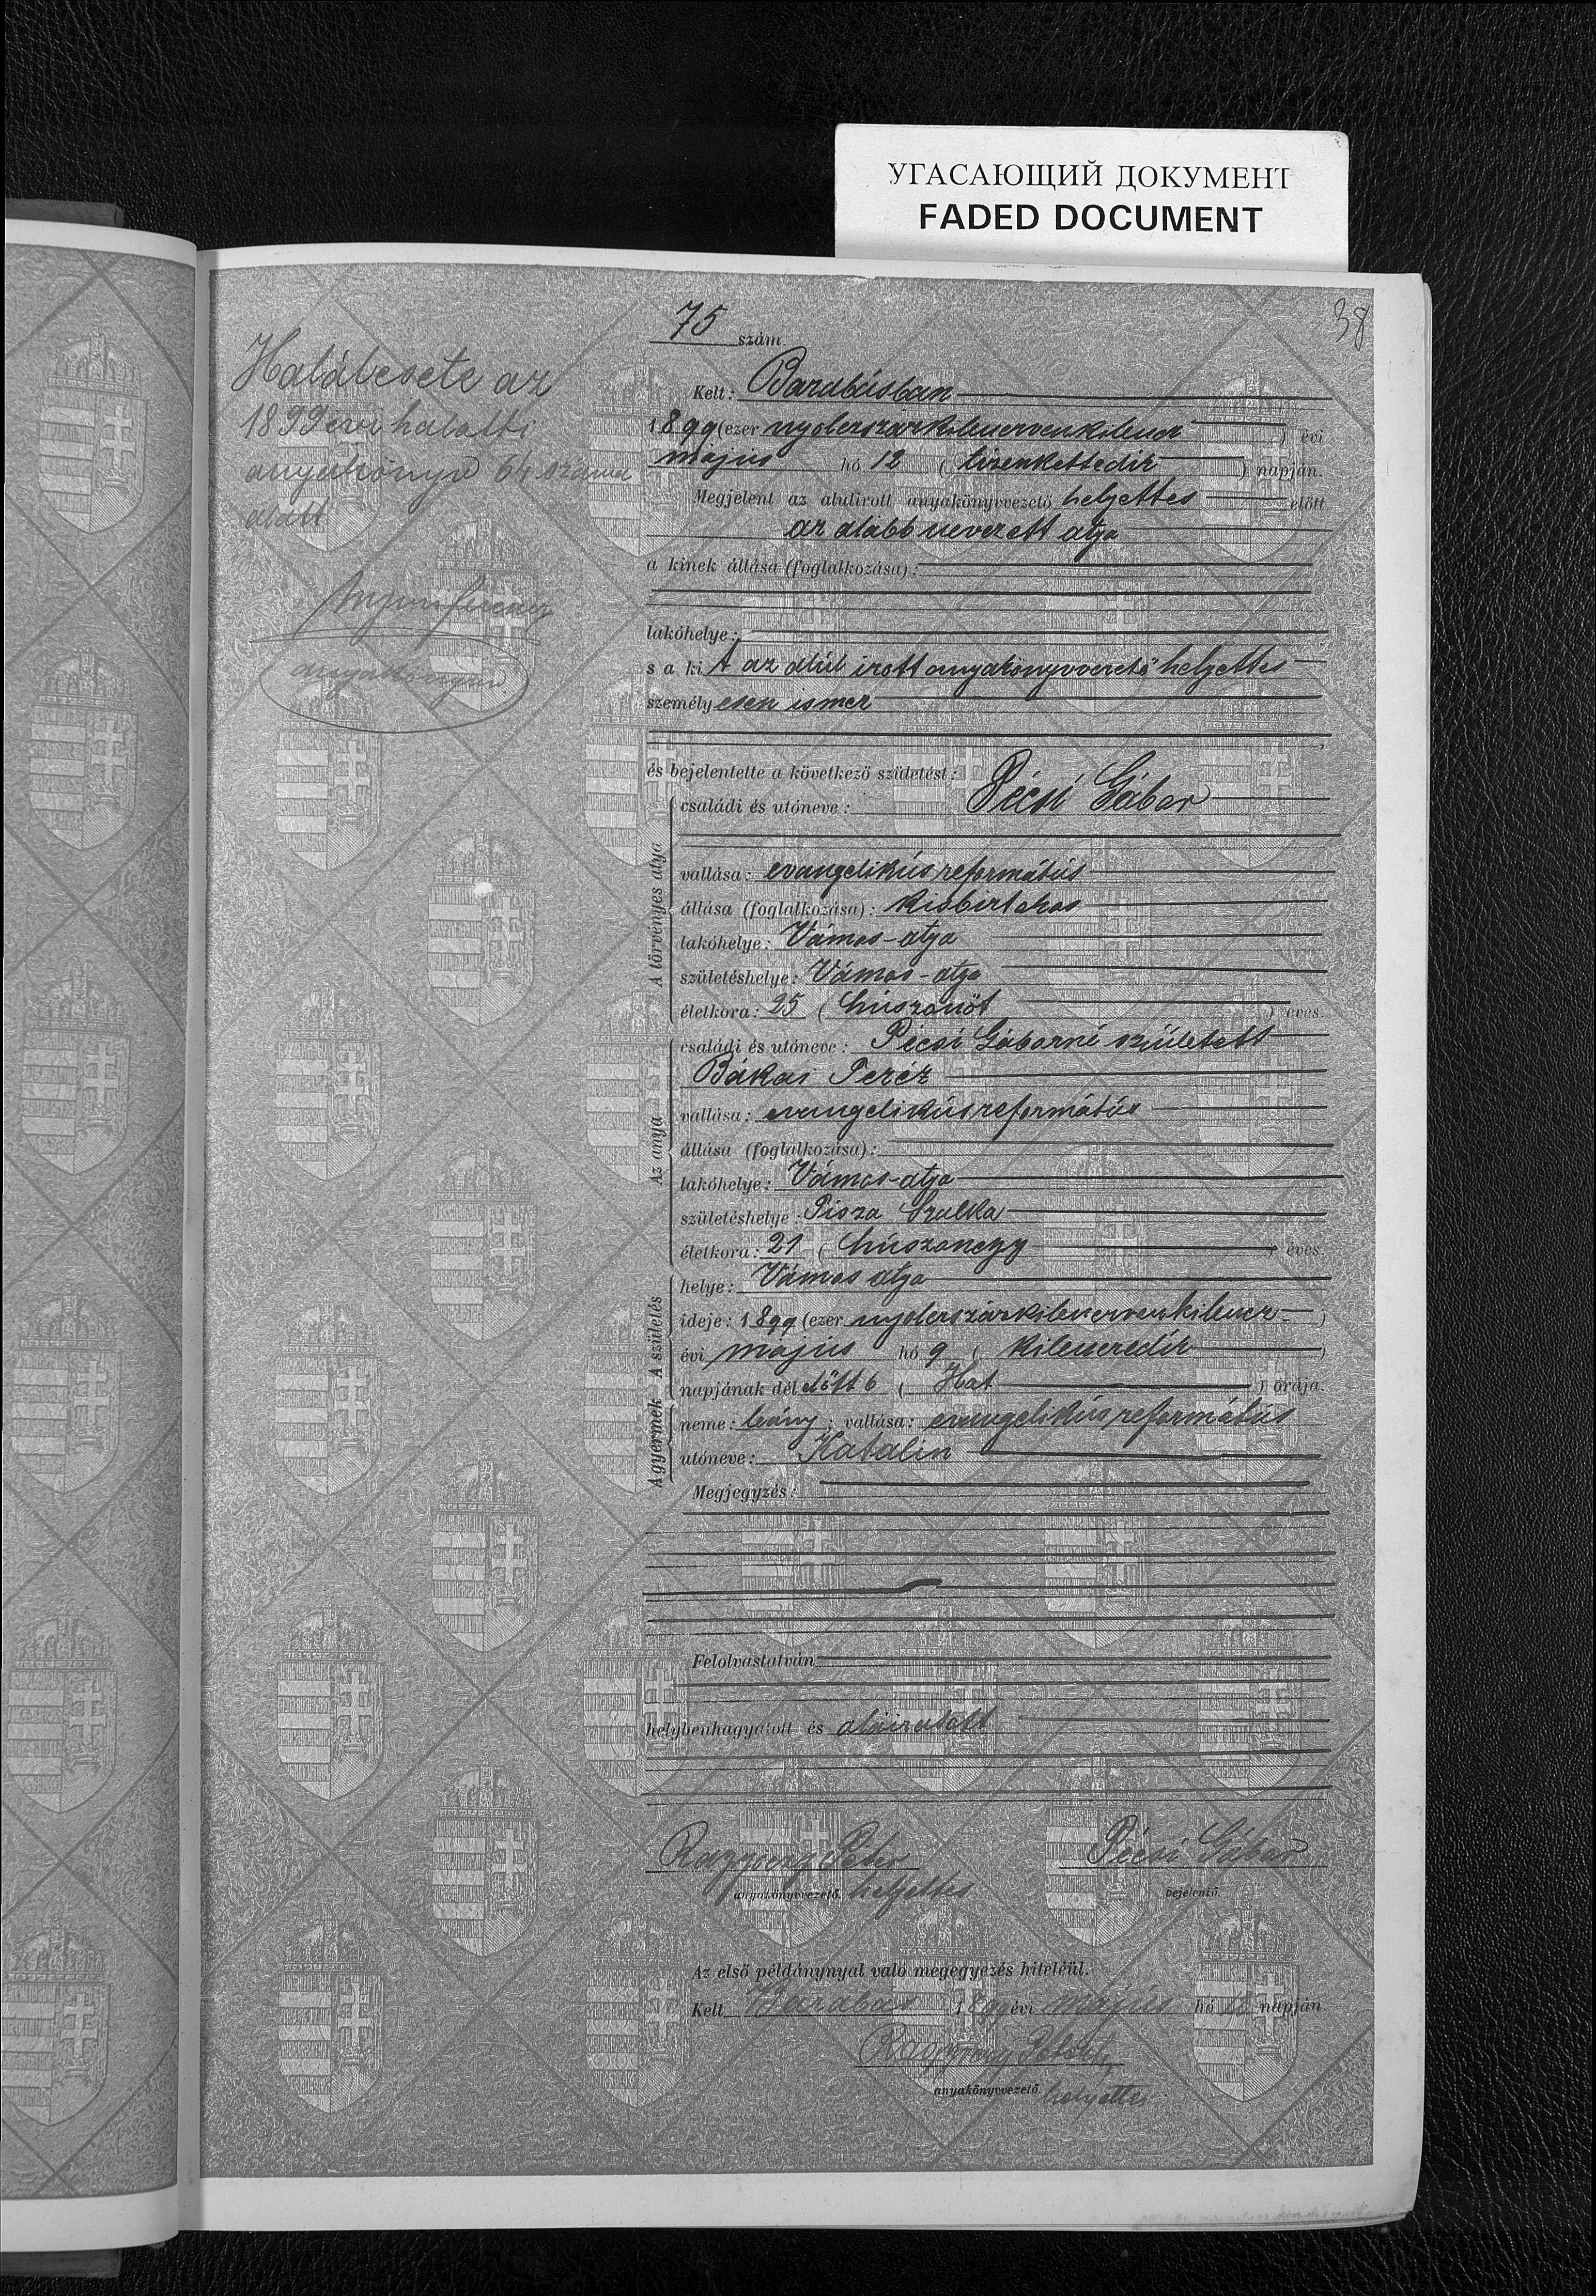 УГАСАЮЩИЙ ДОКУМЕНТ
FADED DOCUMENT
38
75 szám.
Halálesete az
1899 évi halotti
anyakönyv 64 száma
alatt
Kelt: Barabásban
1899 (ezer nyolczszázkilenczvenkilencz) évi
május hó 12 (tizenkettedik) napján.
Megjelent az alulirott anyakönyvvezető helyettes előtt
az alább nevezett atya
a kinek állása (foglalkozása):
lakóhelye:
s a kit az alúl irott anyakönyvvezető helyettes
személyesen ismer
és bejelentette a következő születést:
A törvényes atya
családi és utóneve: Pécsi Gábor
vallása: evangelikús református
állása (foglalkozása): kisbirtokos
lakóhelye: Vámos-atya
születéshelye: Vámos-atya
életkora: 25 (húszonöt) éves.
Az anya
családi és utóneve: Pécsi Gáborné született
Bákai Teréz
vallása: evangelikús református
állása (foglalkozása):
lakóhelye: Vámos-atya
születéshelye: Tisza Szalka
életkora: 21 (húszonegy) éves.
A születés
helye: Vámos atya
ideje: 1899 (ezer nyolczszázkilenczvenkilencz)
évi május hó 9 (kilenczedik)
napjának dél előtt 6 (Hat) órája.
A gyermek
neme: leány; vallása: evangelikús református
utóneve: Katalin
Megjegyzés:
Felolvastatván
helybenhagyatott és aláiratott
Péter Pécsi Gábor
anyakönyvvezető helyettes bejelentő.
Az első példánynyal való megegyezés hiteléül.
Kelt Barabás 1899 évi május hó 12 napján
anyakönyvvezető. helyettes